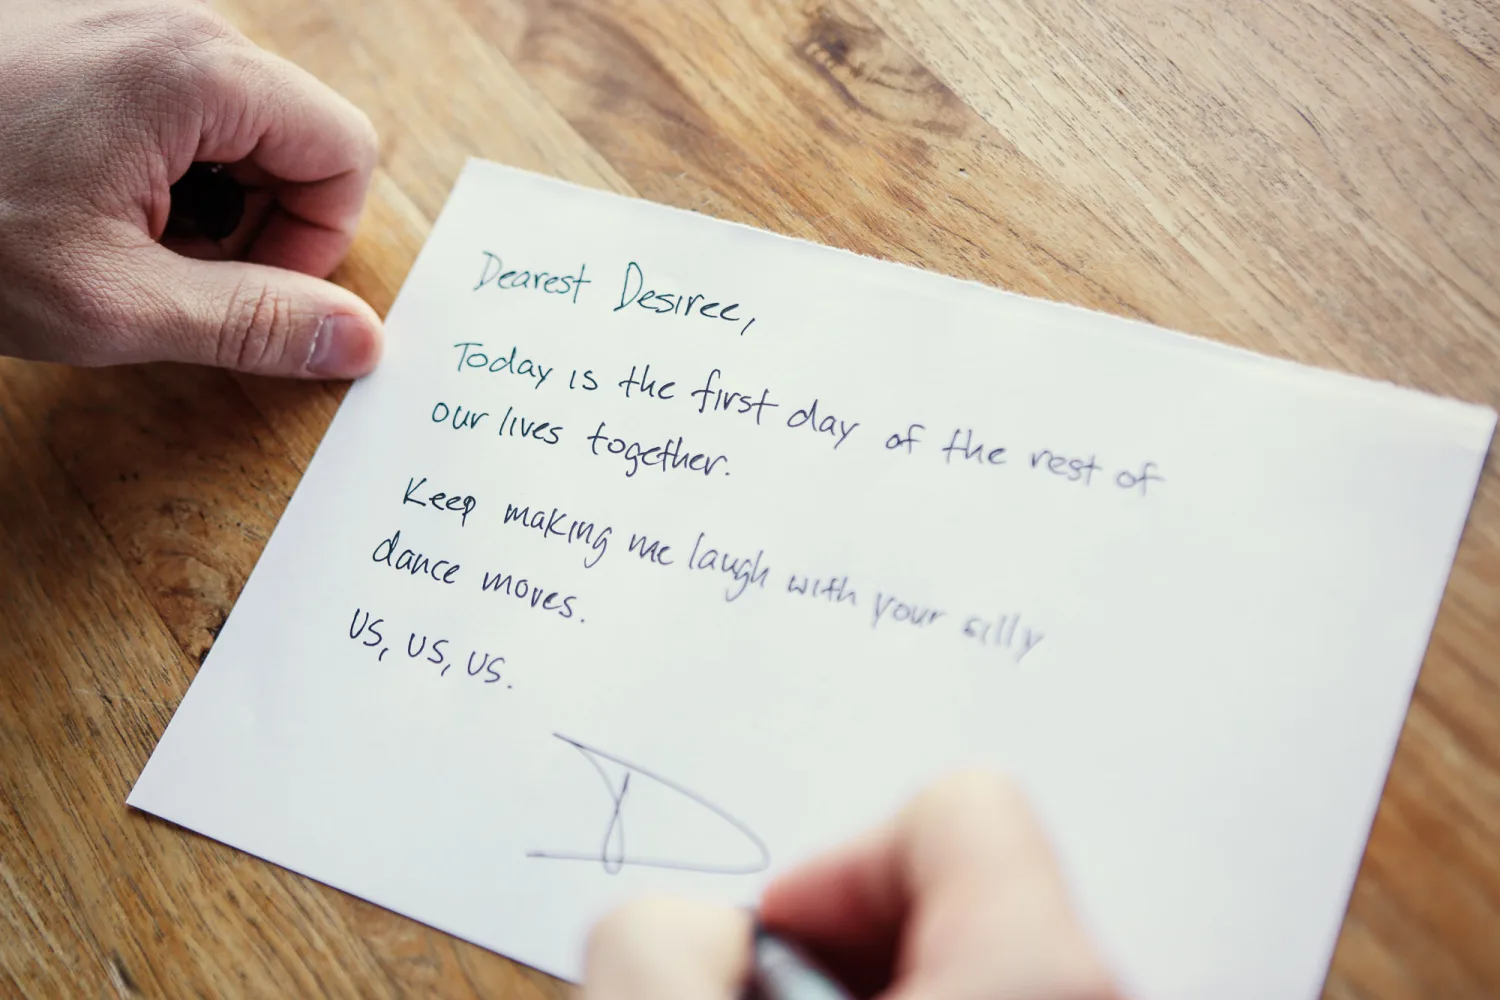 Dearest Desiree,
Today is the first day of the rest of
our lives together.
Keep making me laugh with your silly
dance moves.
US, US, US.
D